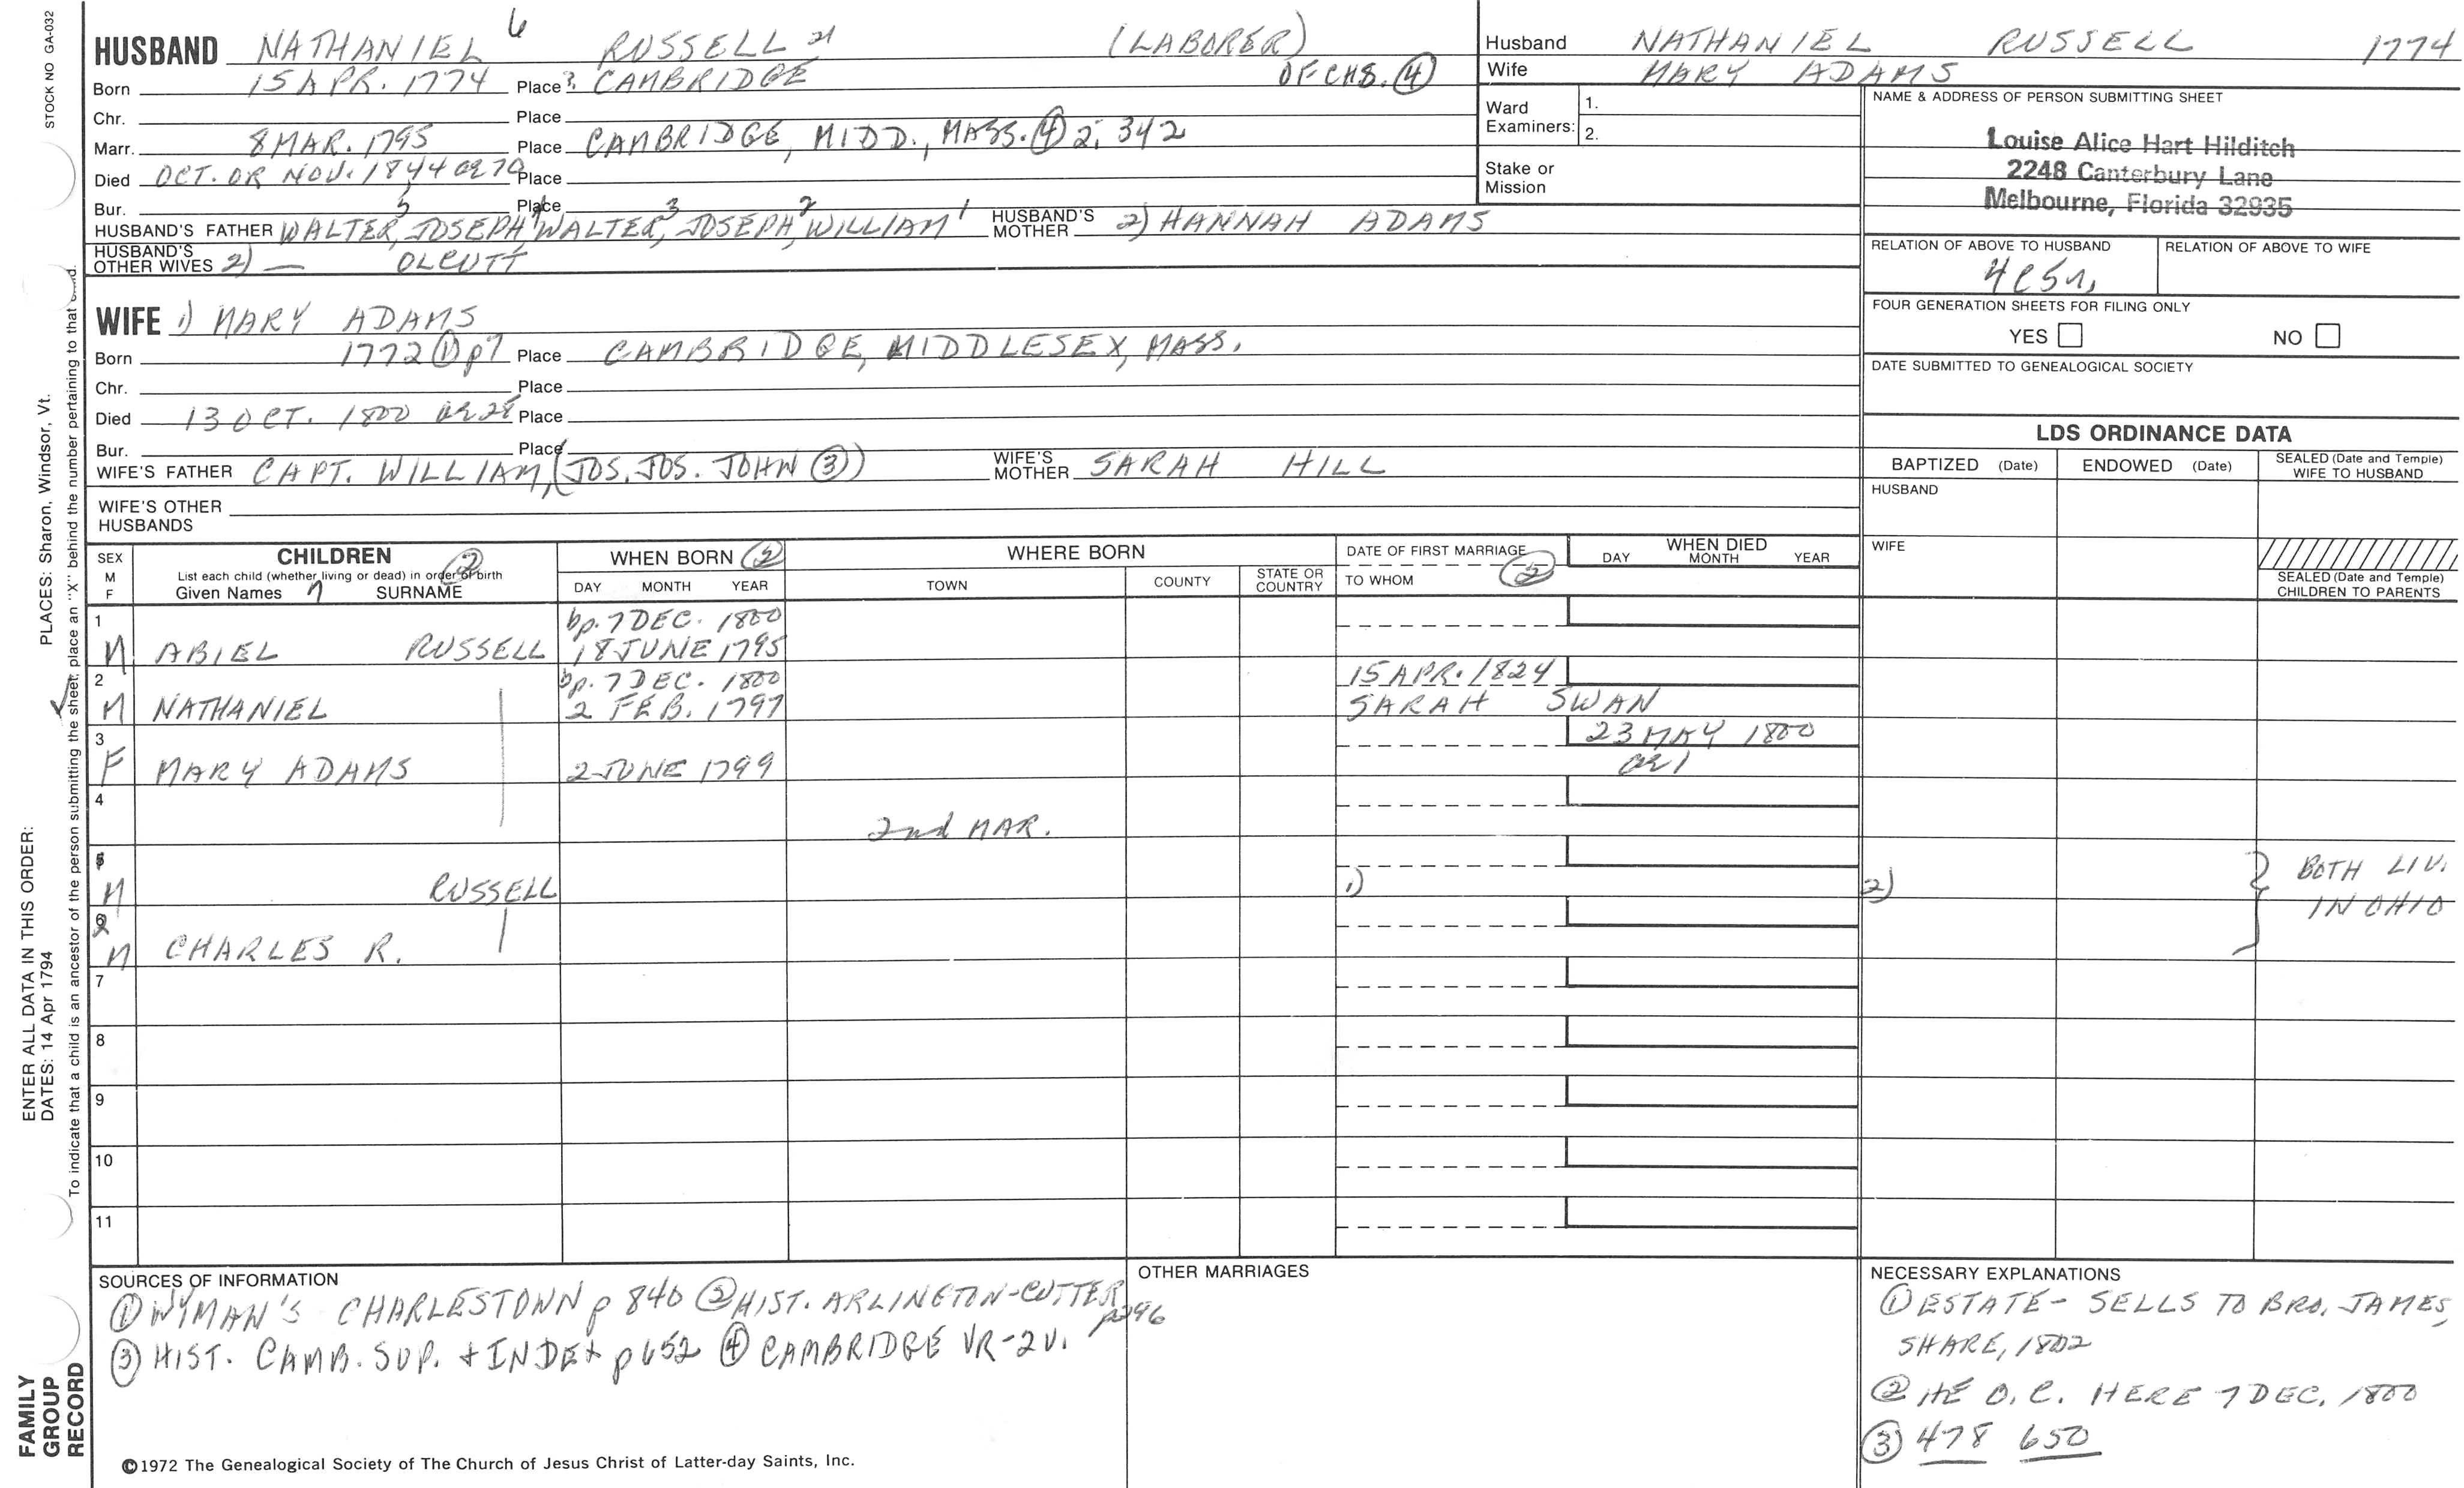 STOCK NO GA-032
HUSBAND NATHANIEL 6 RUSSELL 21 (LABORER)
Born 15 APR. 1774 Place ?. CAMBRIDGE OF CHS. (4)
Chr. Place
Marr. 8 MAR. 1795 Place CAMBRIDGE, MIDD., MASS. (4) 2; 342
Died OCT. OR NOV. 1844 ae 70 Place
Bur. Place
HUSBAND'S FATHER WALTER 5, JOSEPH 4, WALTER 3, JOSEPH 2, WILLIAM 1 HUSBAND'S MOTHER 2) HANNAH ADAMS
HUSBAND'S OTHER WIVES 2) — OLCUTT
WIFE 1) MARY ADAMS
Born 1772 (1) p7 Place CAMBRIDGE, MIDDLESEX, MASS.
Chr. Place
Died 13 OCT. 1800 ae 28 Place
Bur. Place
WIFE'S FATHER CAPT. WILLIAM, (JOS. JOS. JOHN (3)) WIFE'S MOTHER SARAH HILL
WIFE'S OTHER HUSBANDS
Husband NATHANIEL RUSSELL 1774
Wife MARY ADAMS
Ward Examiners: 1.
2.
Stake or Mission
NAME & ADDRESS OF PERSON SUBMITTING SHEET
Louise Alice Hart Hilditch
2248 Canterbury Lane
Melbourne, Florida 32935
RELATION OF ABOVE TO HUSBAND RELATION OF ABOVE TO WIFE
FOUR GENERATION SHEETS FOR FILING ONLY
YES NO
DATE SUBMITTED TO GENEALOGICAL SOCIETY
LDS ORDINANCE DATA
BAPTIZED (Date) ENDOWED (Date) SEALED (Date and Temple) WIFE TO HUSBAND
HUSBAND
WIFE
SEALED (Date and Temple) CHILDREN TO PARENTS
SEX M F
CHILDREN (2)
List each child (whether living or dead) in order of birth
Given Names 7 SURNAME
WHEN BORN (2)
DAY MONTH YEAR
WHERE BORN
TOWN COUNTY STATE OR COUNTRY
DATE OF FIRST MARRIAGE
TO WHOM (2)
WHEN DIED
DAY MONTH YEAR
1 bp. 7 DEC. 1800
M ABIEL RUSSELL 18 JUNE 1795
2 bp. 7 DEC. 1800 15 APR. 1824
M NATHANIEL 2 FEB. 1797 SARAH SWAN
3 23 MAY 1800
F MARY ADAMS 2 JUNE 1799 ae 1
4
2nd MAR.
5
M RUSSELL 1) 2) } BOTH LIV.
6 IN OHIO
M CHARLES R.
7
8
9
10
11
SOURCES OF INFORMATION
(1) WYMAN'S CHARLESTOWN p 840 (2) HIST. ARLINGTON-CUTTER p296
(3) HIST. CAMB. SUP. + INDEX p 652 (4) CAMBRIDGE VR-2V.
OTHER MARRIAGES
NECESSARY EXPLANATIONS
(1) ESTATE - SELLS TO BRO. JAMES,
SHARE, 1802
(2) HE O.C. HERE 7 DEC. 1800
(3) 478 650
©1972 The Genealogical Society of The Church of Jesus Christ of Latter-day Saints, Inc.
PLACES: Sharon, Windsor, Vt.
ENTER ALL DATA IN THIS ORDER:
DATES: 14 Apr 1794
To indicate that a child is an ancestor of the person submitting the sheet, place an "X" behind the number pertaining to that child.
FAMILY
GROUP
RECORD